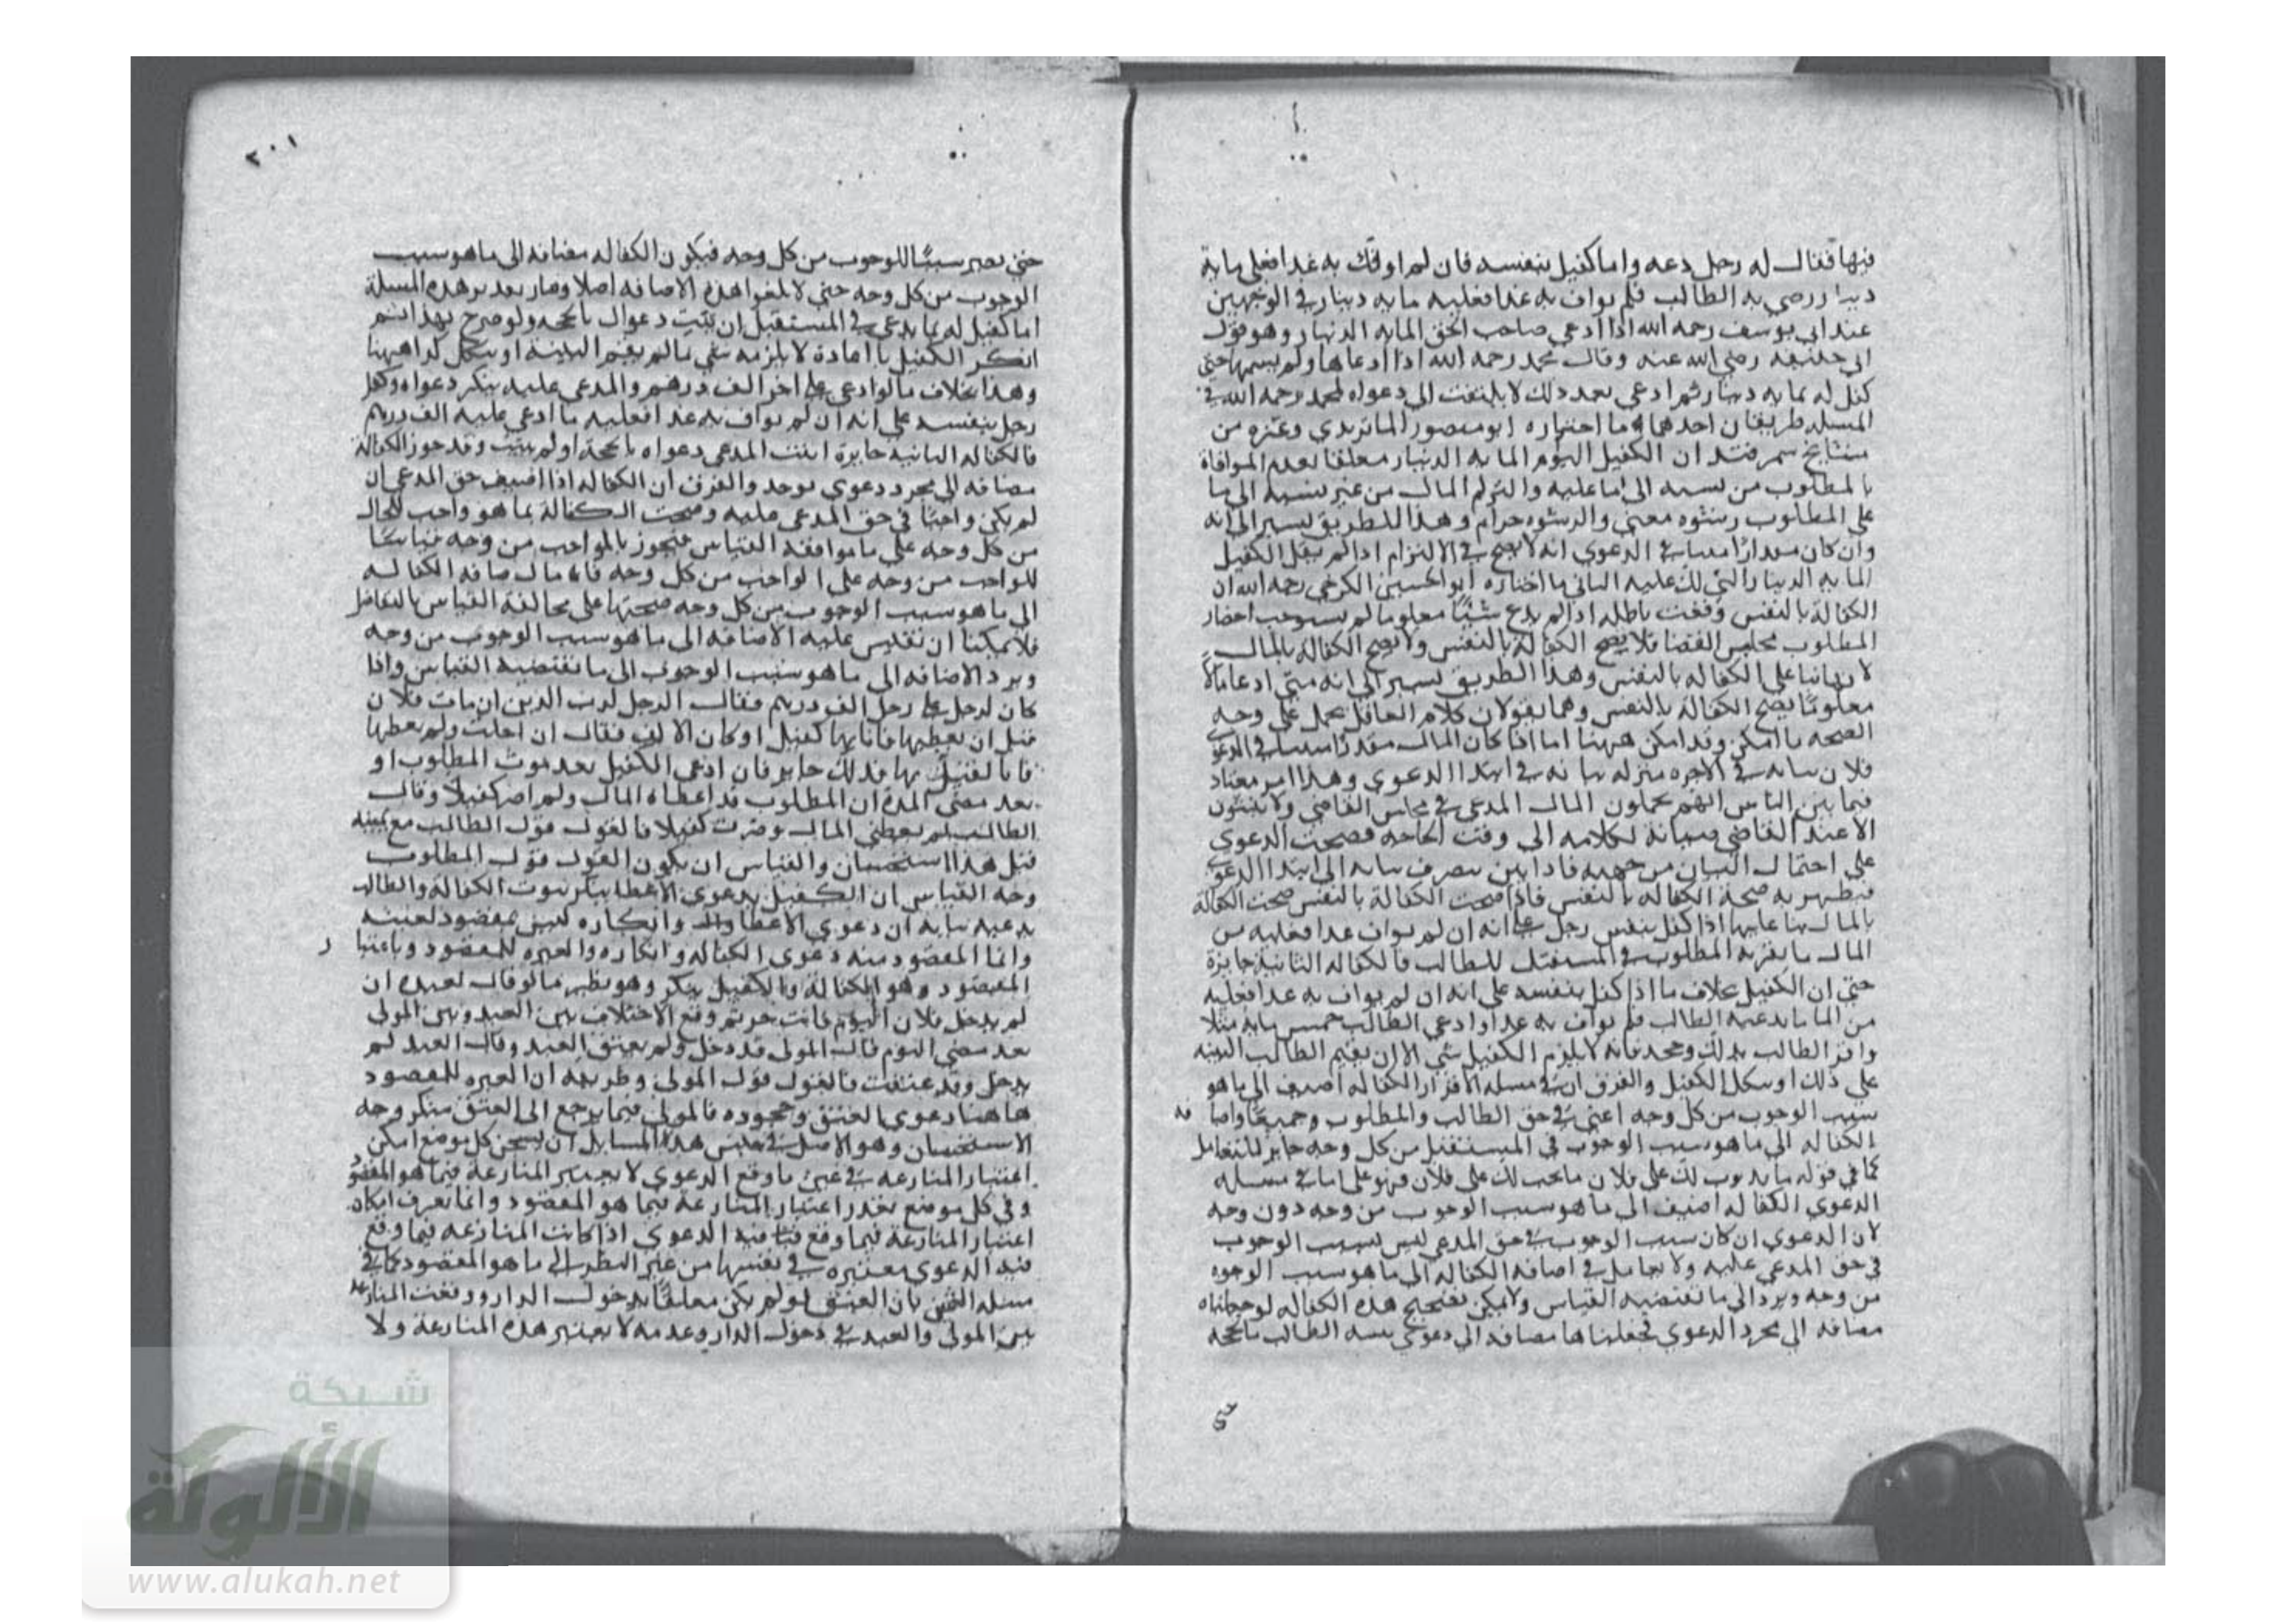 فيها فقال له رجل دعه وانا كفيل بنفسه فان لم اوفك به غدا فعلي ماية
دينار ورضي به الطالب فلم يواف به غدا فعليه ماية دينار في الوجهين
عند ابي يوسف رحمه الله اذا ادعي صاحب الحق الماية الدنيار وهو قول
ابي حنيفة رضي الله عنه وقال محمد رحمه الله اذا ادعاها ولم يسمها حتي
كفل له بماية دينار ثم ادعي بعد ذلك لا يلتفت الي دعواه لمحمد رحمه الله في
المسله طريقان احدهما ما اختاره ابو منصور الماتريدي وغيره من
مشايخ سمرقند ان الكفيل اليوم الماية الدنيار معلقا بعدم الموافاة
بالمطلوب من نسبه الي ما عليه والتزم المال من غير نسبة الي ما
علي المطلوب رشوه معني والرشوه حرام وهذا الطريق يسير الي انه
وان كان مقدارا مبينا في الدعوي انه لا يصح في الالتزام اذا لم يقل الكفيل
الماية الدينار التي لك عليه الثاني ما اختاره ابو الحسين الكرخي رحمه الله ان
الكفالة بالنفس وقعت باطله اذا لم يدع شيًا معلوما لم يستوجب احضار
المطلوب مجلس القضا فلا يصح الكفالة بالنفس ولا يصح الكفالة بالمال
لانها بنا علي الكفاله بالنفس وهذا الطريق يسير الي انه متي ادعا مالا
معلومًا يصح الكفالة بالنفس وهما يقولان كلام العاقل يحمل علي وجه
الصحه ما امكن وقد امكن ههنا اما اذا كان المال مقدرًا مبينا في الدعوي
فلان بيانه في الاخره منزله بيانه في ابتدا الدعوي وهذا امر معتاد
فيما بين الناس انهم يجملون المال المدعي في مجلس القاضي ولا يبينون
الا عند القاضي صيانة لكلامه الي وقت الحاجه فصحت الدعوي
علي احتمال البيان من جهته فاذا بين ينصرف بيانه الي ابتدا الدعوي
فيظهر به صحة الكفاله بالنفس فاذا صحت الكفالة بالنفس صحت الكفالة
بالمال بنا عليها اذا كفل بنفس رجل علي انه ان لم يواف غدا فعليه من
المال ما يقر به المطلوب في المستقبل للطالب فالكفاله الثانية جايزة
حتي ان الكفيل بخلاف ما اذا كفل بنفسه علي انه ان لم يواف به غدا فعليه
من المال ما يدعيه الطالب فلم يواف به غدا وادعي الطالب خمس ماية مثلا
واقر الطالب بذلك وجحد فانه لا يلزم الكفيل شي الا ان يقيم الطالب البينة
علي ذلك او ينكل الكفيل والفرق ان في مسله الاقرار الكفاله اضيف الي ما هو
سبب الوجوب من كل وجه اعني في حق الطالب والمطلوب وجميعًا واضافه
الكفاله الي ما هو سبب الوجوب في المستقبل من كل وجه جايز للتعامل
كما في قوله ما يذوب لك علي فلان ما يجب لك علي فلان فهو علي اما في مسله
الدعوي الكفاله اضيف الي ما هو سبب الوجوب من وجه دون وجه
لان الدعوي ان كان سبب الوجوب في حق المدعي ليس بسبب الوجوب
في حق المدعي عليه ولا تعامل في اضافه الكفاله الي ما هو سبب الوجوه
من وجه ويرد الي ما تقتضيه القياس ولا يمكن تصحيح هذه الكفاله لو جعلناه
مضافه الي مجرد الدعوي فجعلناها مضافه الي دعوي يثبته الطالب بالحجه
٢٠١
حتي يصير سببًا للوجوب من كل وجه فيكون الكفاله مضافه الي ما هو سبب
الوجوب من كل وجه حتي لا يلغوا هذه الاضافه اصلا وصار تقدير هذه المسلة
انا كفيل له بما يدعي في المستقبل ان يثبت دعواك بالحجه ولو صرح بهذا ثم
انكر الكفيل لا يلزمه شي ما لم يقم البينة او ينكل كذا ههنا
وهذا بخلاف ما لو ادعي علي اخر الف درهم والمدعي عليه ينكر دعواه وكفل
رجل بنفسه علي انه ان لم يواف به غدا فعليه ما ادعي عليه الف درهم
فالكفاله الثانيه جايزة اثبت المدعي دعواه بالحجة او لم يثبت وقد جوز الكفالة
مضافه الي مجرد دعوي توجد والفرق ان الكفاله اذا اضيف حق المدعي ان
لم يكن واجبًا في حق المدعي عليه وصحت الكفالة بما هو واجب للحال
من كل وجه علي ما موافقه القياس فيجوز بالواجب من وجه قياسًا
للواجب من وجه علي الواجب من كل وجه فاما اضافه الكفاله
الي ما هو سبب الوجوب من كل وجه صحتها علي مخالفة القياس بالتعامل
فلا يمكننا ان نقيس عليه الاضافه الي ما هو سبب الوجوب من وجه
ويرد الاضافه الي ما هو سبب الوجوب الي ما تقتضيه القياس واذا
كان لرجل علي رجل الف درهم فقال الرجل لرب الدين ان مات فلان
قبل ان يعطيها فانا بها كفيل او كان الالف فقال ان احلت ولم يعطها
فانا كفيل بها فذلك جايز فان ادعي الكفيل بعد موت المطلوب او
بعد مضي المدة ان المطلوب قد اعطاه المال ولم اصر كفيلا وقال
الطالب لم يعطني المال وصرت كفيلا فالقول قول الطالب مع يمينه
قيل هذا استحسان والقياس ان يكون القول قول المطلوب
وجه القياس ان الكفيل بدعوي الاعطا ينكر ثبوت الكفالة والطالب
يدعيه بيانه ان دعوي الاعطا وانكاره ليس بمقصود لعينه
وانما المقصود منه دعوي الكفاله وانكاره والعبره للمقصود وباعتبار
المقصود وهو الكفالة والكفيل ينكر وهو نظير ما لو قال لعبده ان
لم يدخل فلان اليوم فانت حر ثم وقع الاختلاف بين العبد وبين المولي
بعد مضي اليوم قال المولي قد دخل ولم يعتق العبد وقال العبد لم
يدخل وقد عتقت فالقول قول المولي وطريقه ان العبره للمقصود
هاهنا دعوي العتق وجحوده فالمولي فيما يرجع الي العتق منكر وجه
الاستحسان وهو الاصل في جنس هذه المسايل ان كل موضع امكن
اعتبار المنازعه في عين ما وقع الدعوي لا يعتبر المنازعة فيما هو المقصود
وفي كل موضع تعذر اعتبار المنازعة فيما هو المقصود وانما يعرف امكان
اعتبار المنازعة فيما وقع فيه الدعوي اذا كانت المنازعه فيما وقع
فيه الدعوي معتبره في نفسها من غير النظر الي ما هو المقصود كما في
مسله العتق فان العتق لو لم يكن معلقًا بدخول الدار ووقعت المنازعة
بين المولي والعبد في دخول الدار وعدمه لا يعتبر هذه المنازعة ولا
شبكة
الألوكة
www.alukah.net